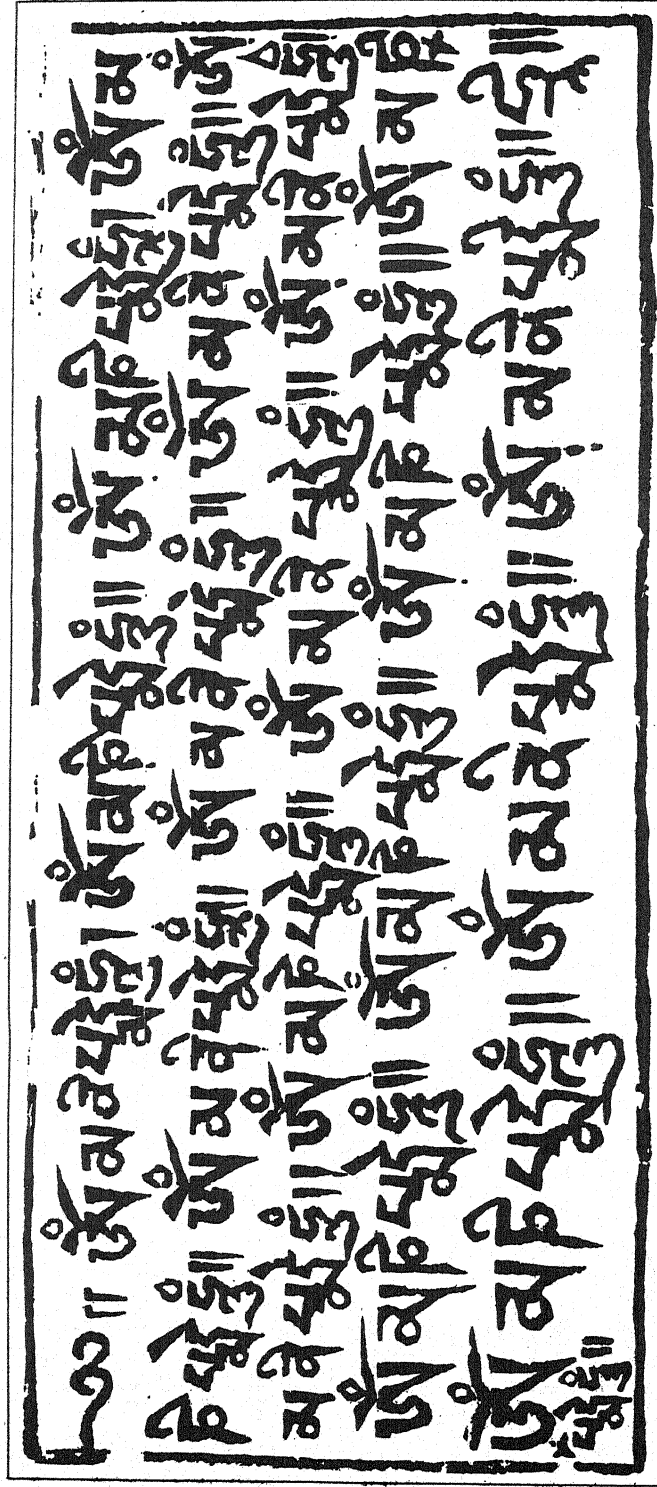 ༄།།ཨོཾ་མ་ཎི་པདྨེ་ཧཱུྃ།ཨོཾ་མ་ཎི་པདྨེ་ཧཱུྃ།།ཨོཾ་མ་ཎི་པདྨེ་ཧཱུྃ།ཨོཾ་མ
ཎི་པདྨེ་ཧཱུྃ།།ཨོཾ་མ་ཎི་པདྨེ་ཧཱུྃ།།ཨོཾ་མ་ཎི་པདྨེ་ཧཱུྃ།།ཨོཾ་མ་ཎི་པདྨེ་ཧཱུྃ།།ཨོཾ
མ་ཎི་པདྨེ་ཧཱུྃ།།ཨོཾ་མ་ཎི་པདྨེ་ཧཱུྃ།།ཨོཾ་མ་ཎི་པདྨེ་ཧཱུྃ།།ཨོཾ་མ་ཎི་པདྨེ་ཧཱུྃ།།
ཨོཾ་མ་ཎི་པདྨེ་ཧཱུྃ།།ཨོཾ་མ་ཎི་པདྨེ་ཧཱུྃ།།ཨོཾ་མ་ཎི་པདྨེ་ཧཱུྃ།།ཨོཾ་མ་ཎི
ཨོཾ་མ་ཎི་པདྨེ་ཧཱུྃ།།ཨོཾ་མ་ཎི་པདྨེ་ཧཱུྃ།།ཨོཾ་མ་ཎི་པདྨེ་ཧཱུྃ།།ཧྲཱི།།
པདྨེ་ཧཱུྃ།།